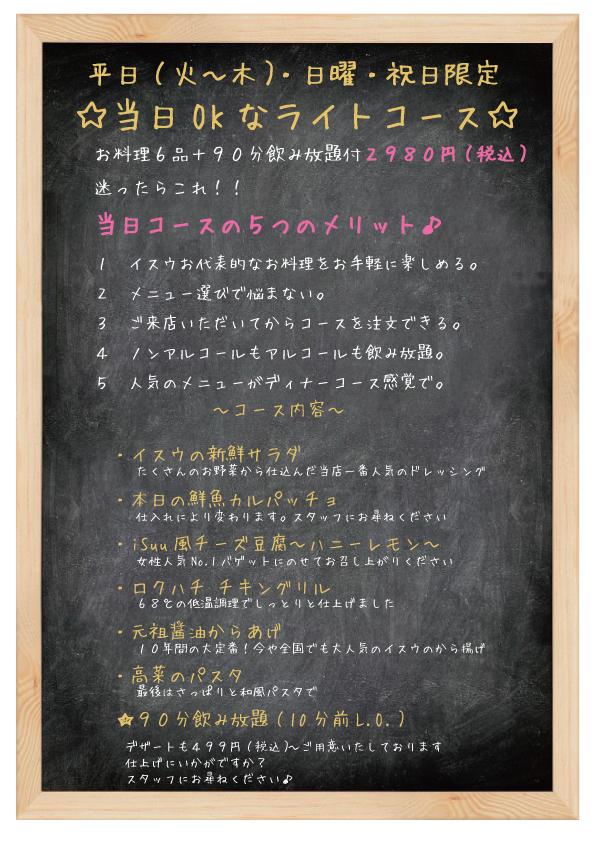 平日（火～木）・日曜・祝日限定
☆当日OKなライトコース☆
お料理６品＋９０分飲み放題付２９８０円（税込）
迷ったらこれ！！
当日コースの５つのメリット♪
1 イスウお代表的なお料理をお手軽に楽しめる。
2 メニュー選びで悩まない。
3 ご来店いただいてからコースを注文できる。
4 ノンアルコールもアルコールも飲み放題。
5 人気のメニューがディナーコース感覚で。
～コース内容～
・イスウの新鮮サラダ
たくさんのお野菜から仕込んだ当店一番人気のドレッシング
・本日の鮮魚カルパッチョ
仕入れにより変わります。スタッフにお尋ねください
・iSuu風チーズ豆腐～ハニーレモン～
女性人気No.1バゲットにのせてお召し上がりください
・ロクハチ チキングリル
６８℃の低温調理でしっとりと仕上げました
・元祖醤油からあげ
１０年間の大定番！今や全国でも大人気のイスウのから揚げ
・高菜のパスタ
最後はさっぱりと和風パスタで
★９０分飲み放題（10分前L.O.）
デザートも４９９円（税込）～ご用意いたしております
仕上げにいかがですか？
スタッフにお尋ねください♪